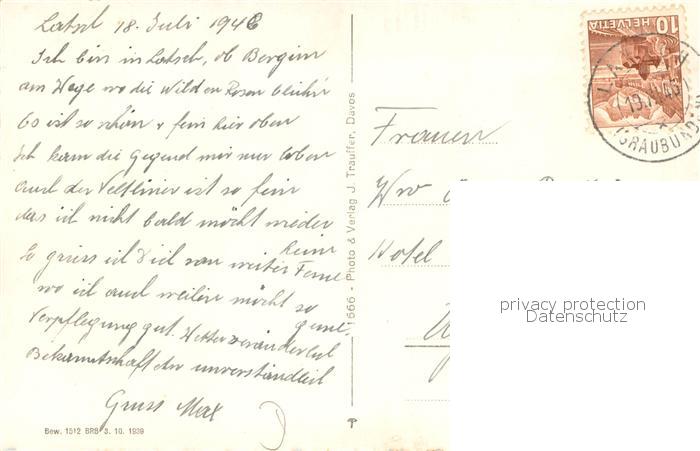 Latsch 18. Juli 1946
Ich bin in Latsch, ob Bergün
am Wege wo die Wilden Rosen blüh'n
Es ist so schön & fein hier oben
Ich kann die Gegend mir nur loben
auch der Veltliner ist so fein
das ich nicht bald möcht wieder heim
So grüss ich Dich von weiter Ferne
wo ich auch weilen möcht so gerne
Verpflegung gut. Wetter veränderlich
Bekanntschaft der unverständlich
Gruss Max
Bew. 1512 BRB 3. 10. 1939
1666 - Photo & Verlag J. Trauffer, Davos
HELVETIA
10
19.VII.46
(GRAUBÜNDEN)
Frauen
Wwe
Hotel
privacy protection
Datenschutz